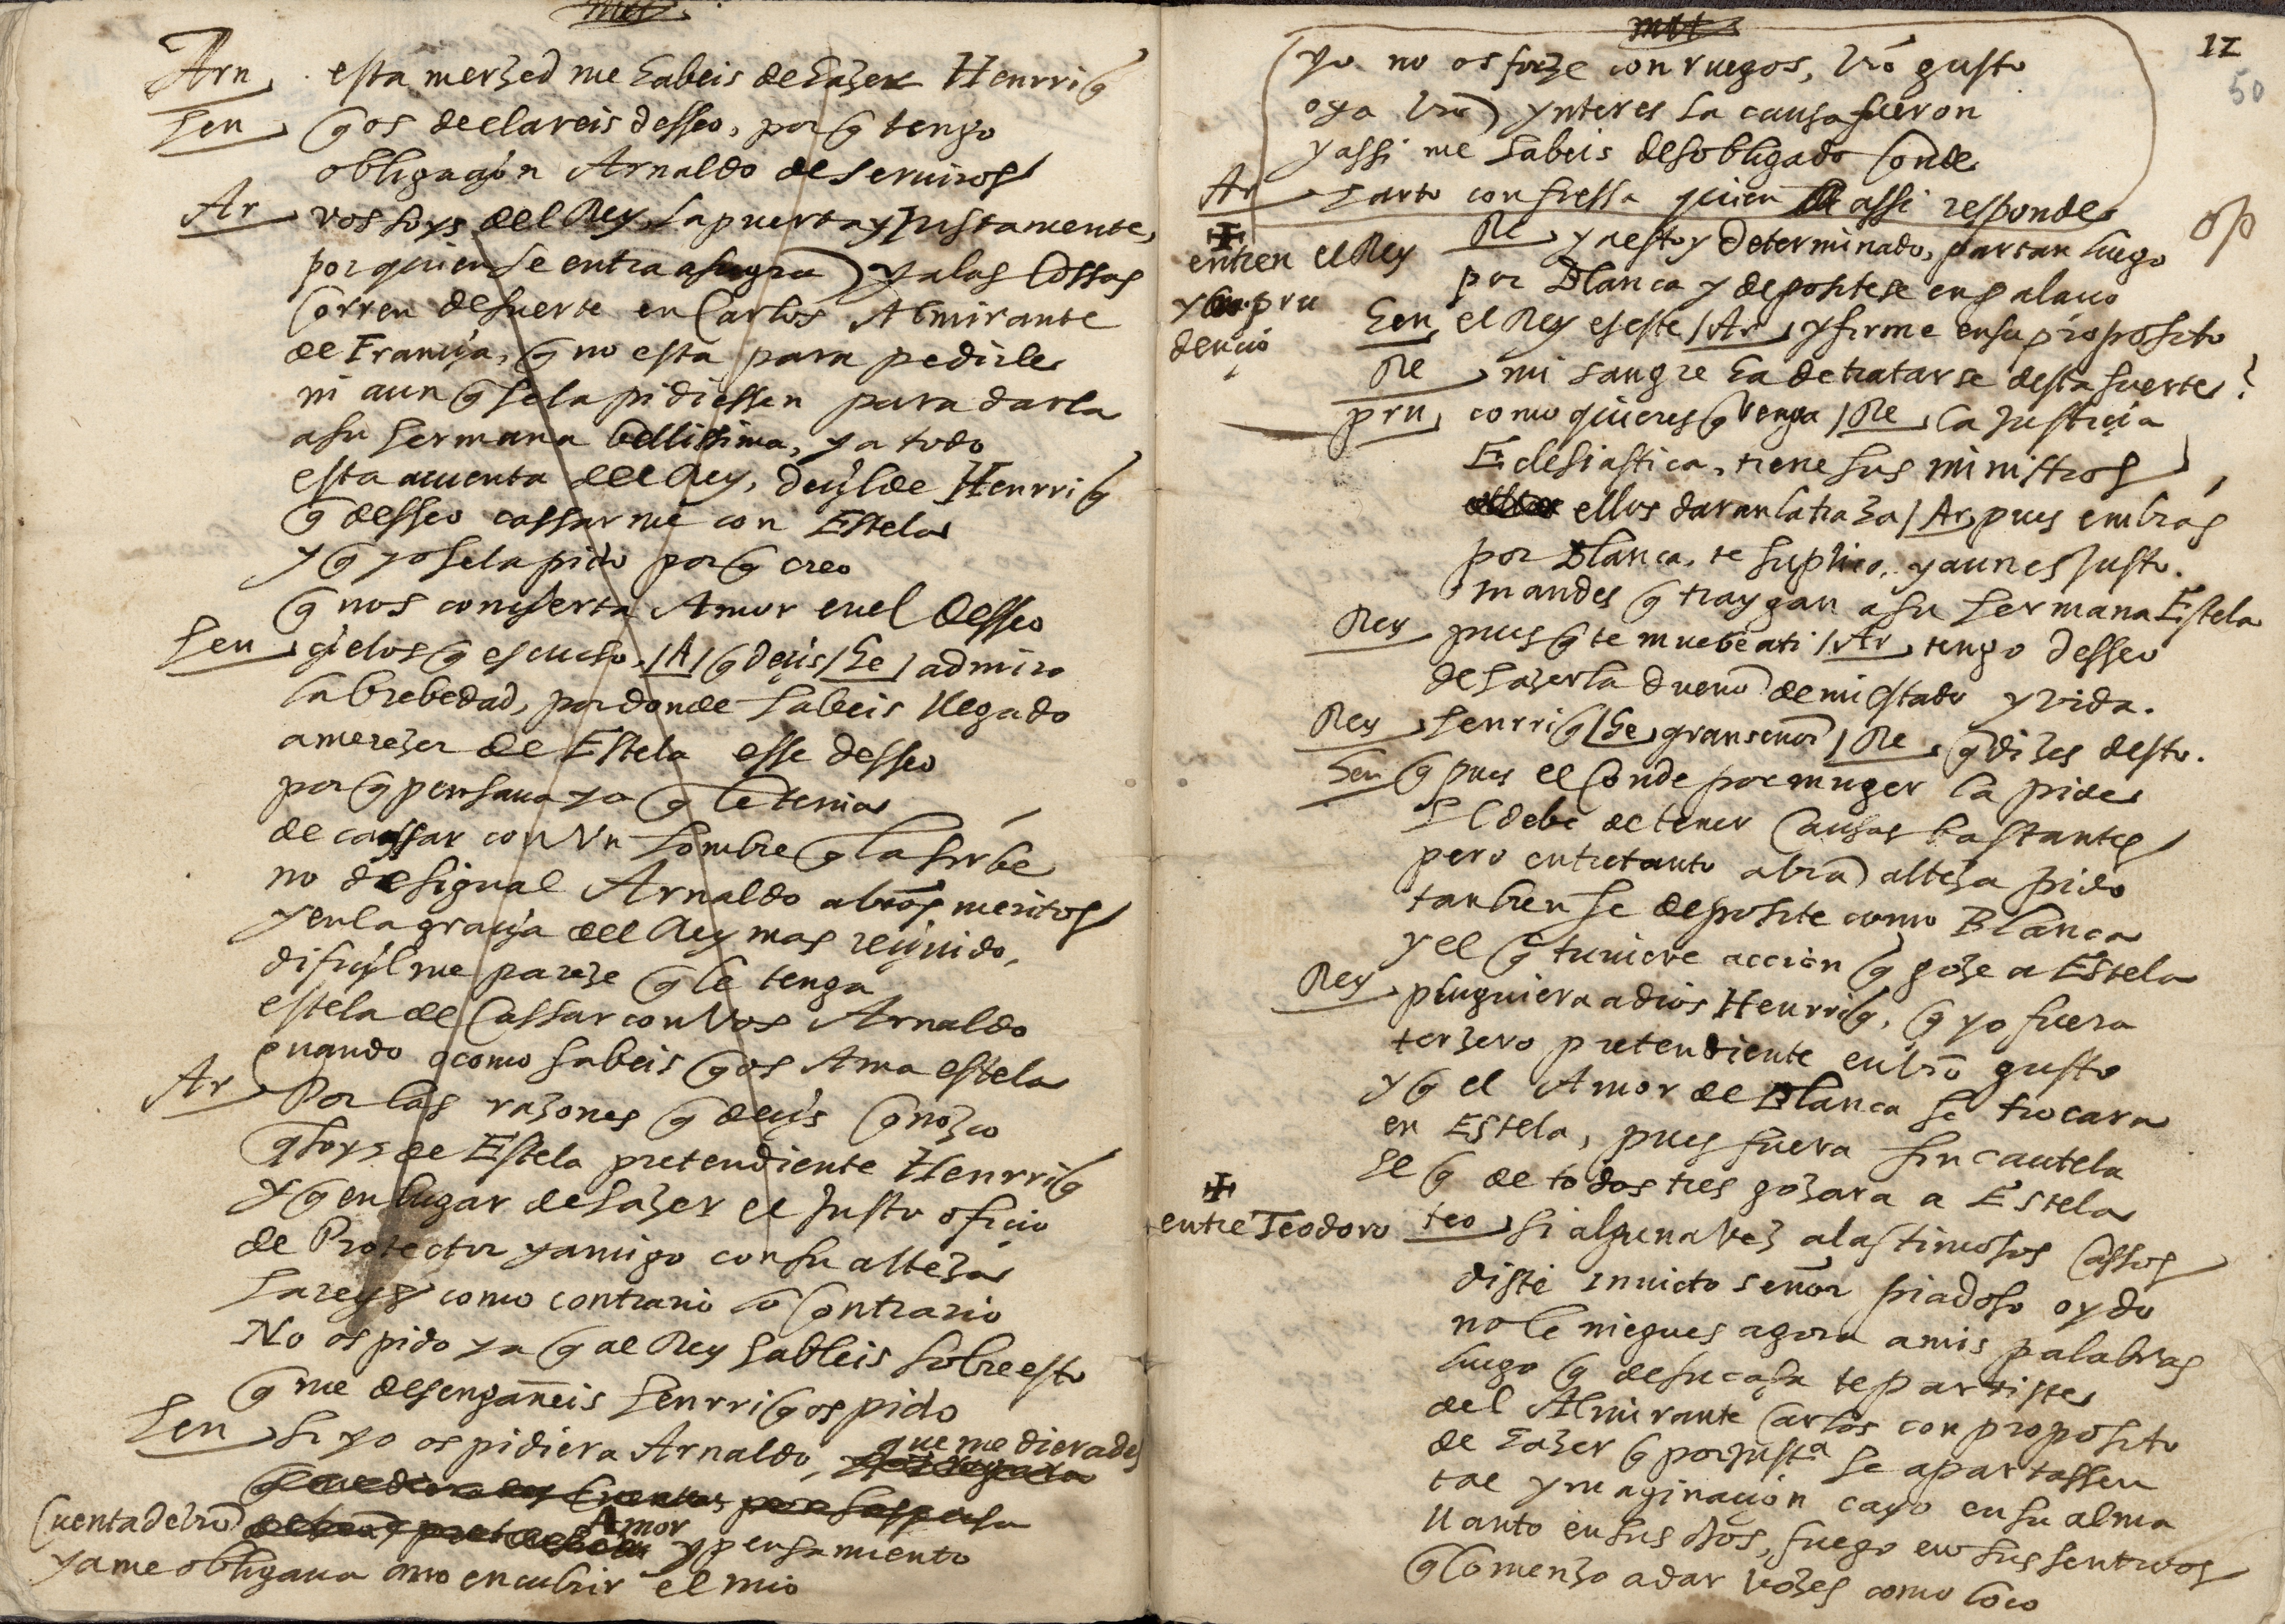 Arn esta merzed me habeis de hazer Henrriq
hen q os declareis desseo, porq tengo
obligaçion Arnaldo de seruiros
Ar vos soys del Rey la puerta y Justamente,
por quien se entra a su gra y a las cossas
corren de suerte en Carlos Almirante
de Françia, q no esta para pedirle
ni aun q se la pidiessen para darla
a su hermana bellissima, ya todo
esta a cuenta del Rey, dezilde Henrriq
q desseo cassarme con Estela
y q yo se la pido porq creo
q nos conçierta Amor en el desseo
hen çielos q escucho. /A/ q deçis /he/ admiro
la brebedad, por donde habeis llegado
a merezer de Estela esse desseo
porq pensaua yo q le tenia
de cassar con Vn hombre q la sirbe
no desigual Arnaldo a vros meritos
y en la graçia del Rey mas reçiuido,
difiçil me pareze q le tenga
estela de Cassar con Vos Arnaldo
quando como sabeis q os Ama estela
Ar Por las razones q deçis Conozco
q soys de Estela pretendiente Henrriq
y q en lugar de hazer el Justo ofiçio
de Protector y amigo con su alteza
hareys como contrario lo Contrario
No os pido ya q al Rey hableis sobre esto
q me desengañeis henrriq os pido
hen si yo os pidiera Arnaldo, que me dierades
Cuenta de vro Amor y pensamiento
ya me obligaua a no encubrir el mio
12
50
yo no os forze con ruegos, vro gusto
o ya vro ynteres la causa fueron
y assi me habeis desobligado Conde
Ar harto confiessa quien assi responde
op
entren el Rey y prudençio
Re ya estoy determinado, partan luego
por Blanca y deposítese en palaçio
hen el Rey es este /Ar/ y firme en su proposito
Re mi sangre ha de tratarse desta suerte?
pru como quieres q venga /Re/ la Justiçia
Eclesiastica, tiene sus ministros,
ellos daran la traza /Ar/ pues embias
por Blanca, te suplico, y aun es Justo.
mandes q traygan a su hermana Estela
Rey pues q te muebe a ti /Ar/ tengo desseo
de hazerla dueño de mi estado y vida.
Rey henrriq /he/ gran señor /Re/ q dizes desto.
hen q pues el Conde por muger la pide
el debe de tener Causas bastantes
pero entretanto a vra alteza pido
tanbien se deposite como Blanca
y el q tuuiere accion q goze a Estela
Rey pluguiera a dios Henrriq, q yo fuera
terzero pretendiente en vro gusto
y q el Amor de Blanca se trocara
en Estela, pues fuera sin cautela
el q de todos tres gozara a Estela
entre Teodoro
teo si alguna vez a lastimosos Cassos
diste inuicto señor piadoso oydo
no le niegues agora a mis palabras
luego q de su casa te partiste
del Almirante Carlos con proposito
de hazer q por justa se apartassen
tal ymaginaçion cayo en su alma
llanto en sus ojos, fuego en sus sentidos
q Comenzo a dar vozes como loco